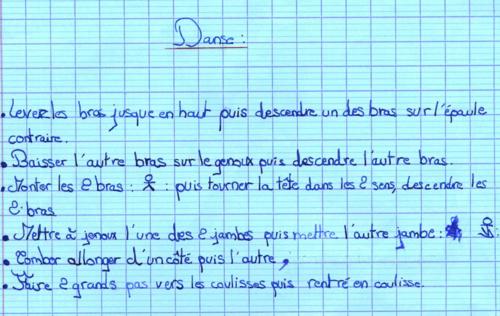 Danse :
. Levez les bras jusque en haut puis descendre un des bras sur l'épaule
contraire.
. Baisser l'autre bras sur le genoux puis descendre l'autre bras.
. Monter les 2 bras : : puis tourner la tête dans les 2 sens, descendre les
2 bras
. Mettre à jenoux l'une des 2 jambes puis mettre l'autre jambe :
. Tomber allonger d'un côté puis l'autre,
. Faire 2 grands pas vers les coulisses puis rentré en coulisse.